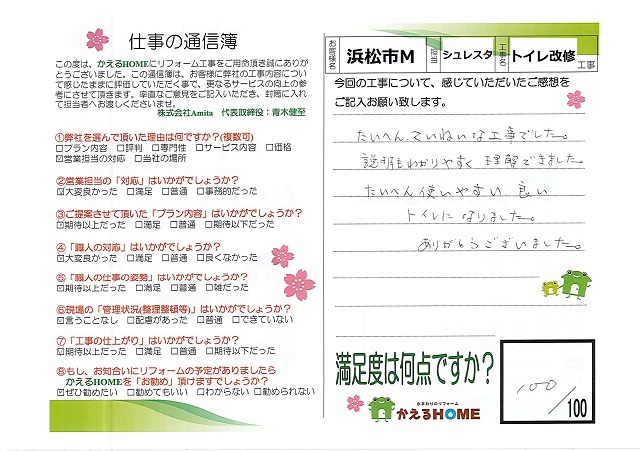 仕事の通信簿
この度は、かえるHOMEにリフォーム工事をご用命頂き誠にありが
とうございました。この通信簿は、お客様に弊社の工事内容につい
て感じたままに評価していただく事で、更なるサービスの向上の参
考にさせて頂きます。率直なご意見をご記入いただき、封筒に入れ
て担当者へお渡しくださいませ。
株式会社Amita 代表取締役：青木健至
①弊社を選んで頂いた理由は何ですか？(複数可)
□プラン内容 □評判 □専門性 □サービス内容 □価格
☑営業担当の対応 □当社の場所
②営業担当の「対応」はいかがでしょうか？
☑大変良かった □満足 □普通 □事務的だった
③ご提案させて頂いた「プラン内容」はいかがでしょうか？
☑期待以上だった □満足 □普通 □期待以下だった
④「職人の対応」はいかがでしょうか？
☑大変良かった □満足 □普通 □良くなかった
⑤「職人の仕事の姿勢」はいかがでしょうか？
☑期待以上だった □満足 □普通 □雑だった
⑥現場の「管理状況(整理整頓等)」はいかがでしょうか？
☑言うことなし □配慮があった □普通 □できていない
⑦「工事の仕上がり」はいかがでしょうか？
☑期待以上だった □満足 □普通 □期待以下だった
⑧もし、お知合いにリフォームの予定がありましたら
かえるHOMEを「お勧め」頂けますでしょうか？
☑ぜひ勧めたい □勧めてもいい □わからない □勧められない
お客様名 浜松市M 担当 シュレスタ 工事名 トイレ改修 工事
今回の工事について、感じていただいたご感想を
ご記入お願い致します。
たいへんていねいな工事でした。
説明もわかりやすく理解できました。
たいへん使いやすい良い
トイレになりました。
ありがとうございました。
満足度は何点ですか？
100/100
水まわりのリフォーム
かえるHOME